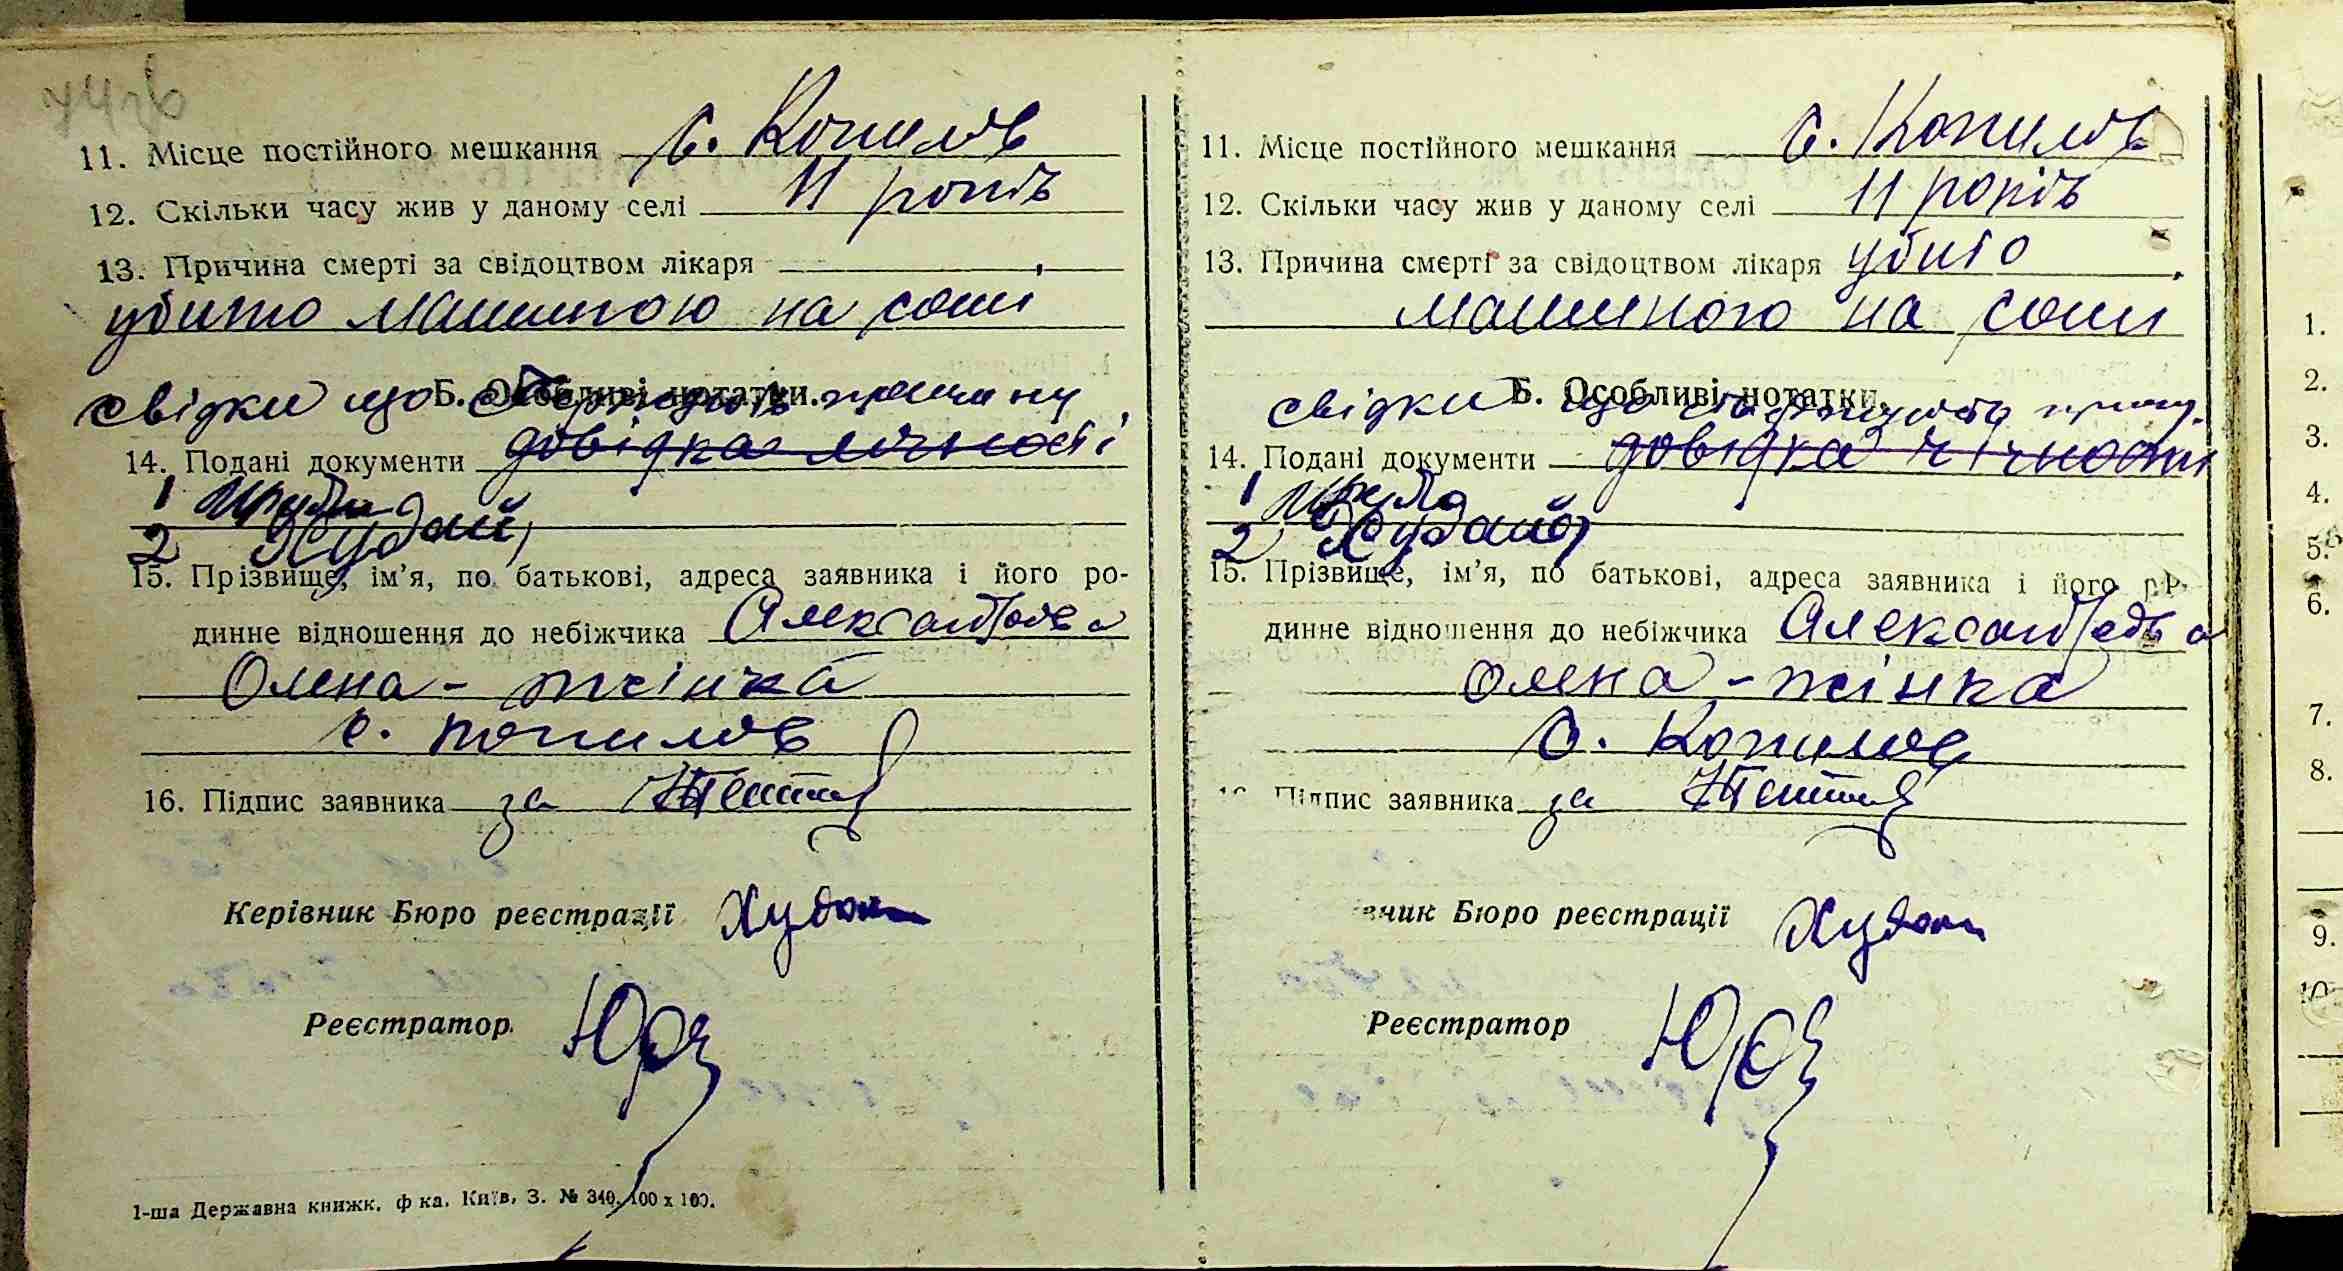 11. Місце постійного мешкання с. Копилов
12. Скільки часу жив у даному селі 11 років
13. Причина смерті за свідоцтвом лікаря
убито машиною на соші
Б. Особливі нотатки.
свідки що причину
14. Подані документи довідка лічності
1
2 Худий
15. Прізвище, ім’я, по батькові, адреса заявника і його ро-
динне відношення до небіжчика
Олена - жінка
с. Копилов
16. Підпис заявника за
Керівник Бюро реєстрації
Реєстратор
1-ша Державна книжк. ф ка. Київ, З. № 340. 100 х 100.
11. Місце постійного мешкання с. Копилов
12. Скільки часу жив у даному селі 11 років
13. Причина смерті за свідоцтвом лікаря убито
машиною на соши
Б. Особливі нотатки.
свідки що
14. Подані документи довідка лічности
1
2
15. Прізвище, ім’я, по батькові, адреса заявника і його р
динне відношення до небіжчика
Олена - жінка
с. Копилов
Підпис заявника за
вник Бюро реєстрації
Реєстратор
1.
2.
3.
4.
5.
6.
7.
8.
9.
10